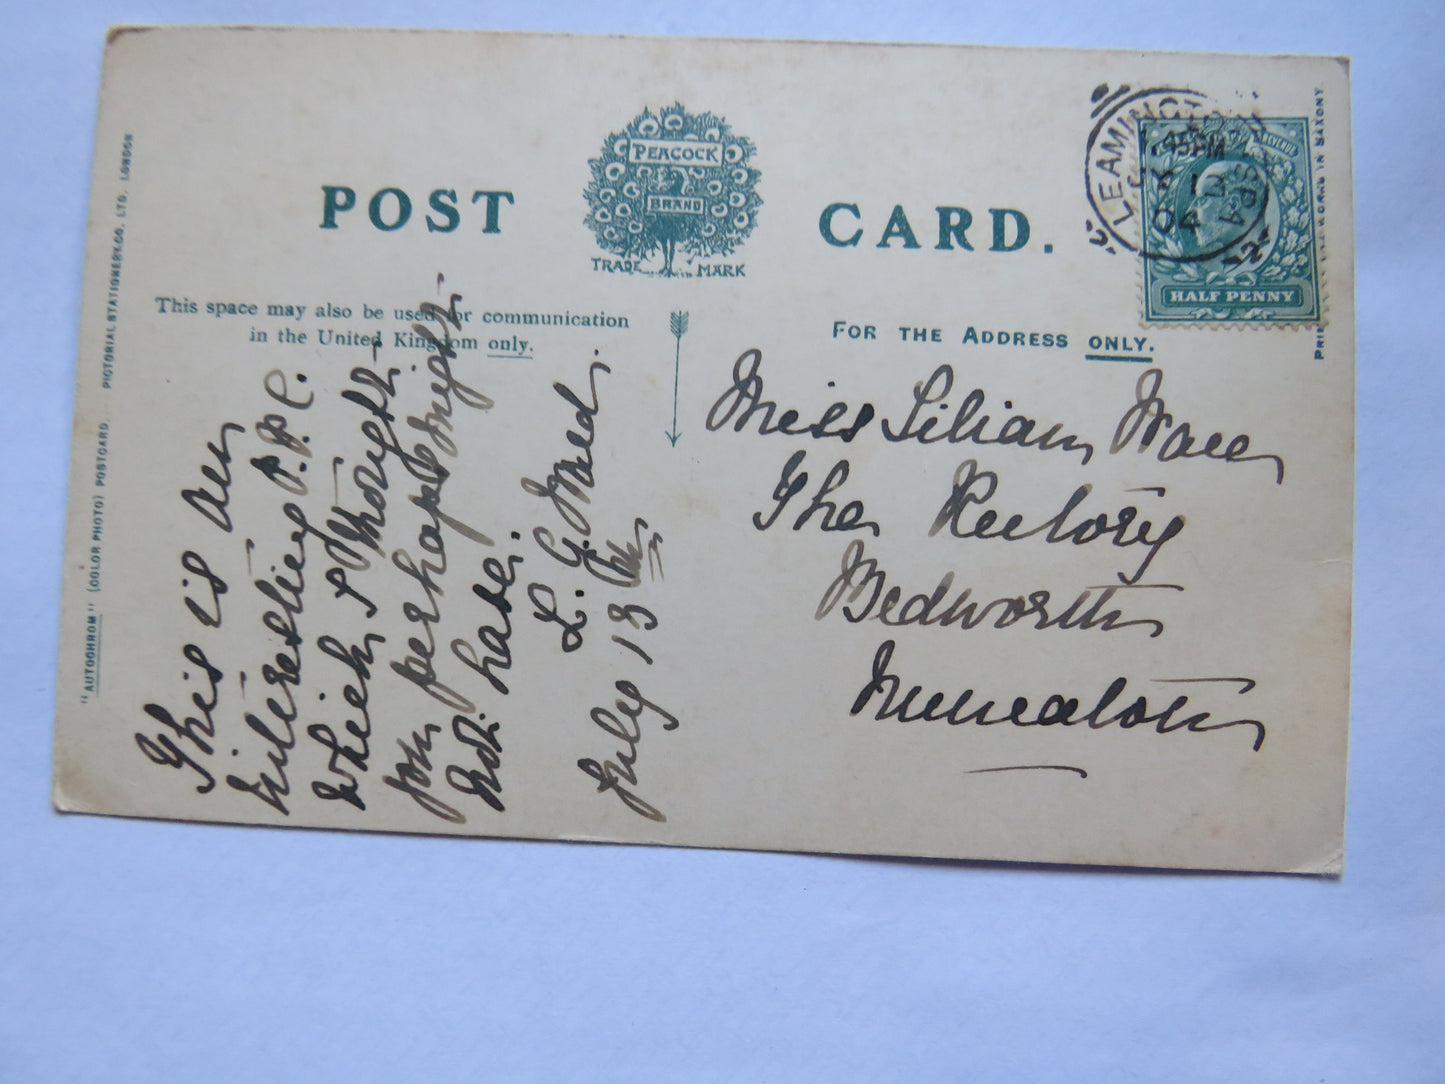 POST CARD.
PEACOCK
BRAND
TRADE MARK
This space may also be used for communication
in the United Kingdom only.
FOR THE ADDRESS ONLY.
"AUTOCHROM" (COLOR PHOTO) POSTCARD. PICTORIAL STATIONERY CO. LTD. LONDON
This is an
interesting P.P.C.
which I thought
you perhaps might
not have.
L. G.
July 13
Miss Lilian
The Rectory
Bedworth
Nuneaton
LEAMINGTON SPA
45PM
04
HALF PENNY
IN SAXONY